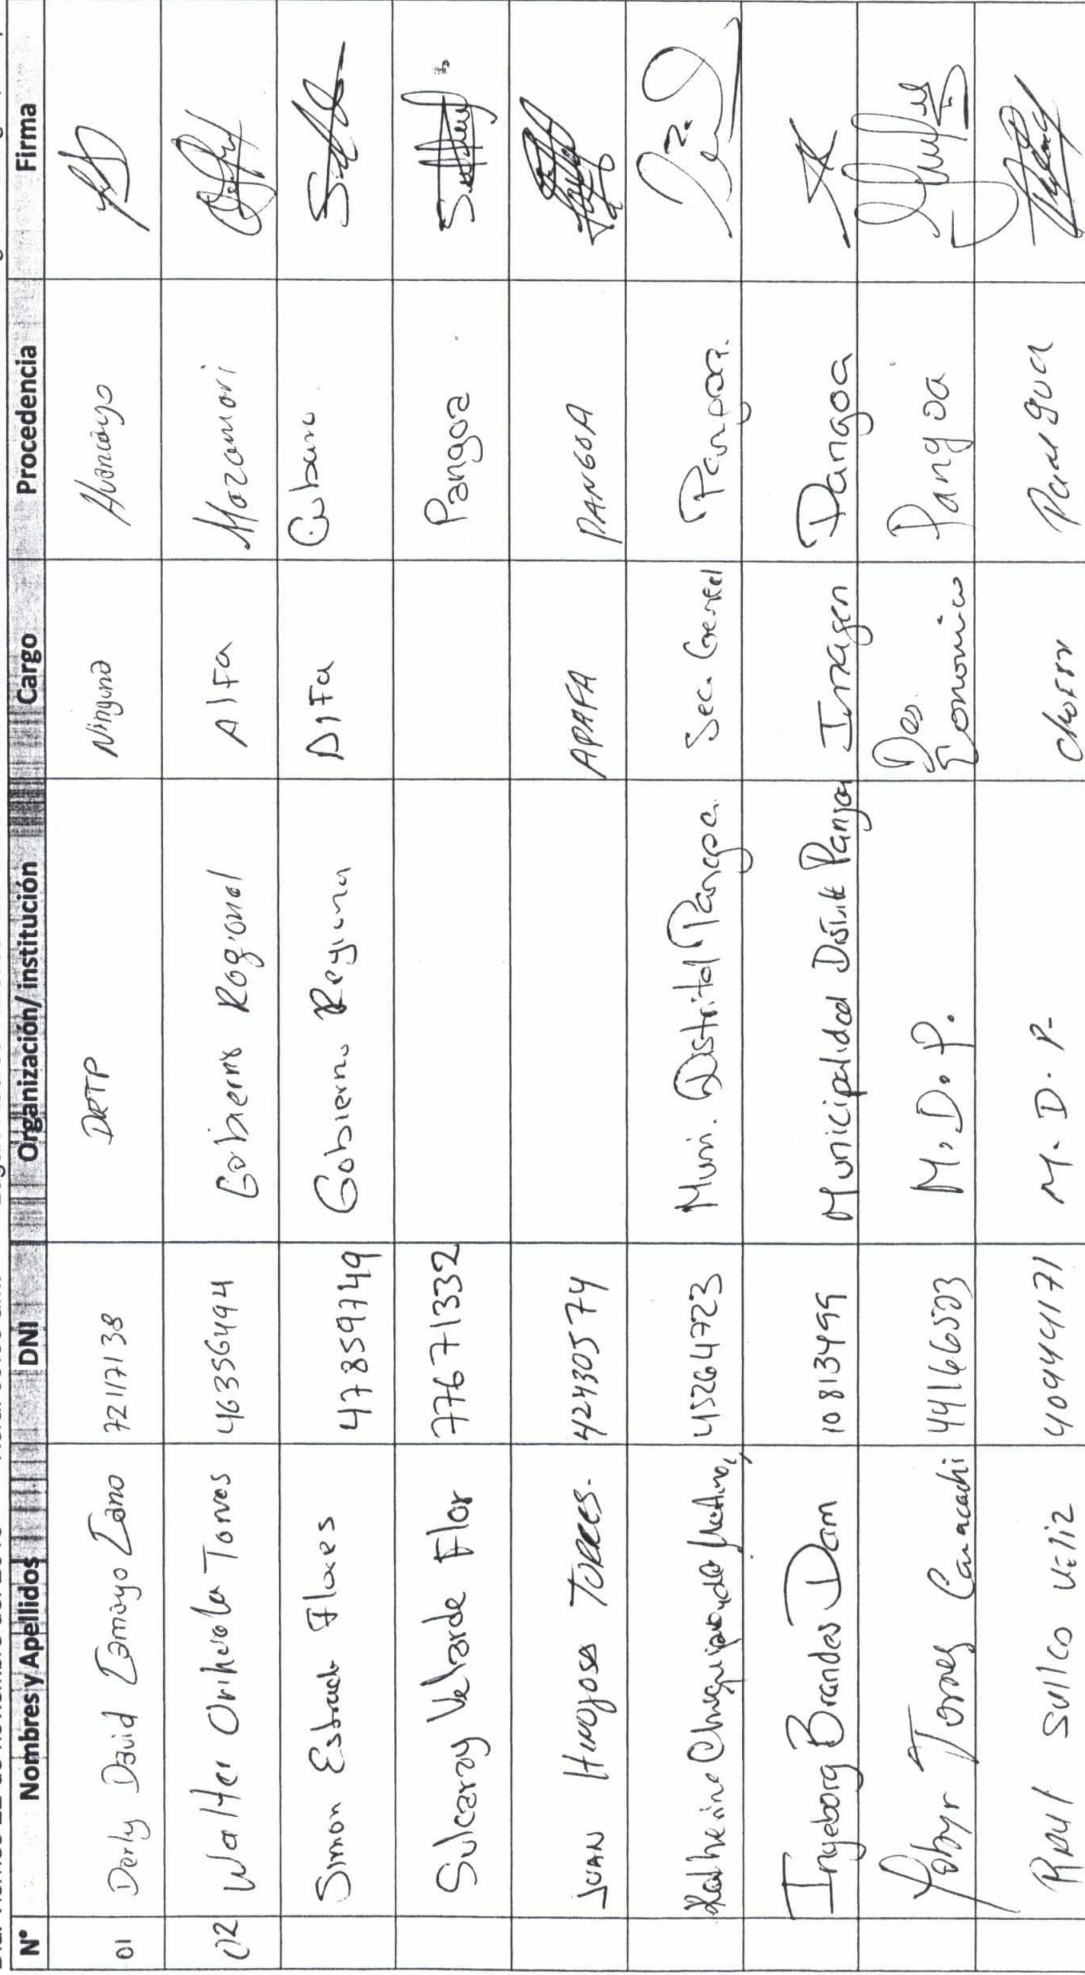 N° Nombres y Apellidos DNI Organización/ institución Cargo Procedencia Firma
01 Derly David Tamayo Lano 72117138 DRTP Ninguna Huancayo
02 Walter Orihuela Torres 46356494 Gobierno Regional Alfa Mazamari
Simon Estrada Flores 47859749 Gobierno Regiona DIFa
Sulcaray Velarde Flor 77671332 Pangoa
JUAN HINOJOSA TORRES. 42430574 APAFA PANGOA
Katherine 45264723 Muni. Distrital Pangoa. Sec. General Pangoa.
Ingeborg Brandes Dam 10813499 Municipalidad Distrit Pangoa Imagen Pangoa
Torres Camacachi 44166503 M. D. P. Des Economico Pangoa
Raul Sullco Veliz 40944171 M. D. P. Chofer